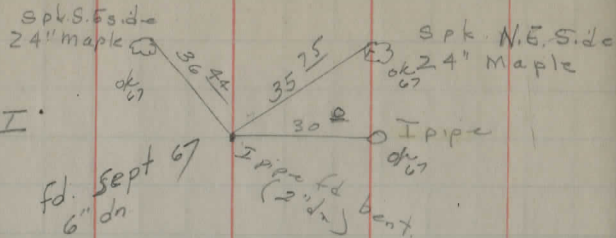 Spk. S.E side
24" maple
36 44
ok
67
35 75
Spk. N.E. Side
24" Maple
ok
67
I
30 0
I pipe
ok
67
fd. Sept 67
6" dn
I pipe fd
(2" dn) bent.